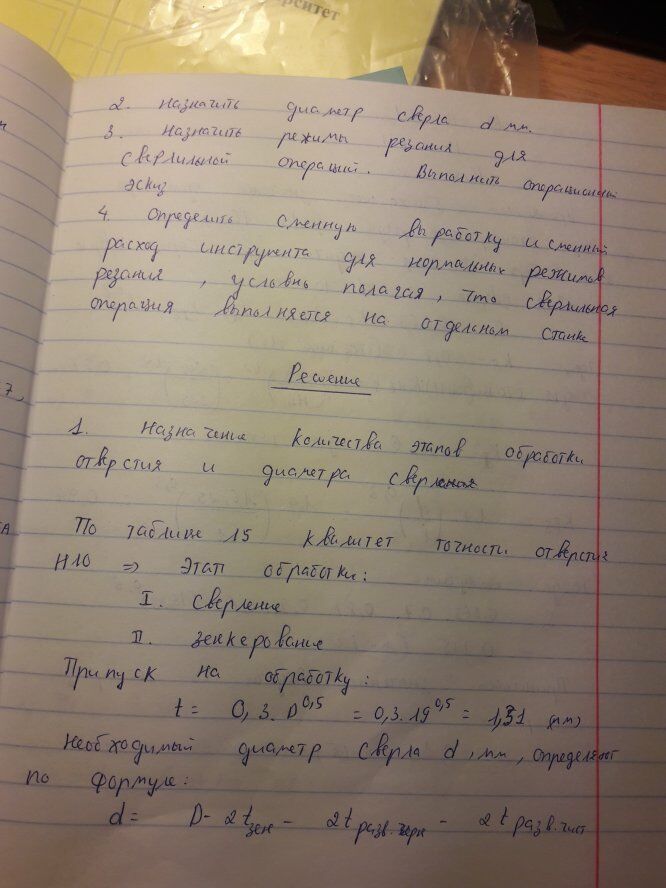 рситет
2. Назначить диаметр сверла d мм.
3. Назначить режимы резания для
сверлильной операций. Выполнить операционный
эскиз
4. Определить сменную выработку и сменный
расход инструмента для нормальных режимов
резания, условно полагая, что сверлильная
операция выполняется на отдельном станке
Решение
7,
1. Назначение количества этапов обработки
отверстия и диаметра сверления
По таблице 15 квалитет точности отверстия
Н10 => Этап обработки:
I. Сверление
II. Зенкерование
Припуск на обработку:
t = 0,3·D^0,5 = 0,3·19^0,5 = 1,31 (мм)
Необходимый диаметр сверла d, мм, определяют
по формуле:
d = D - 2t зенк - 2t разв. черн - 2t разв. чист